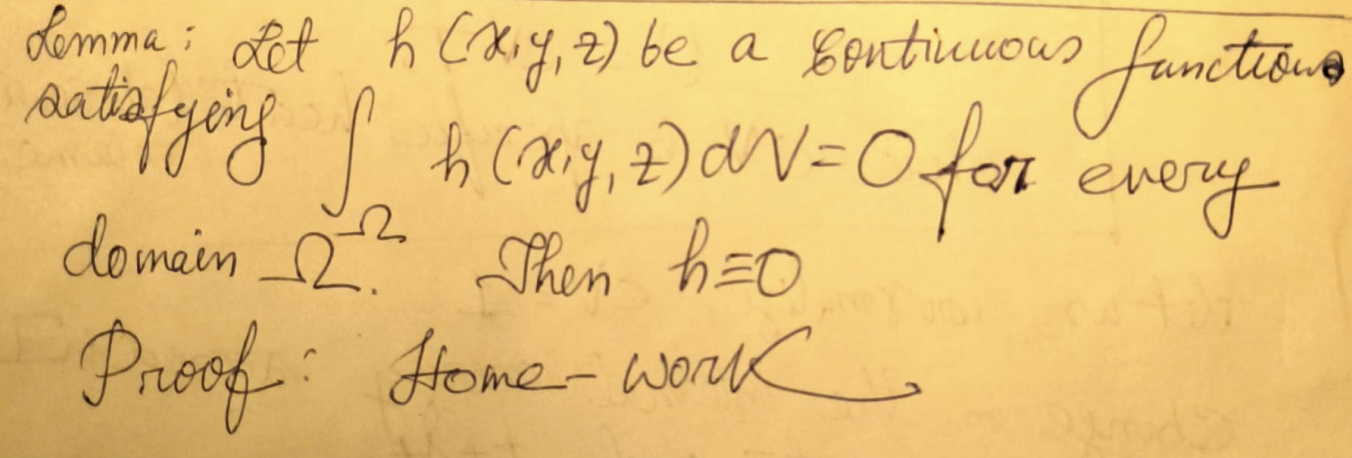 Lemma: Let h(x,y,z) be a continuous function
satisfying ∫_Ω h(x,y,z)dV=0 for every
domain Ω. Then h≡0
Proof: Home-work